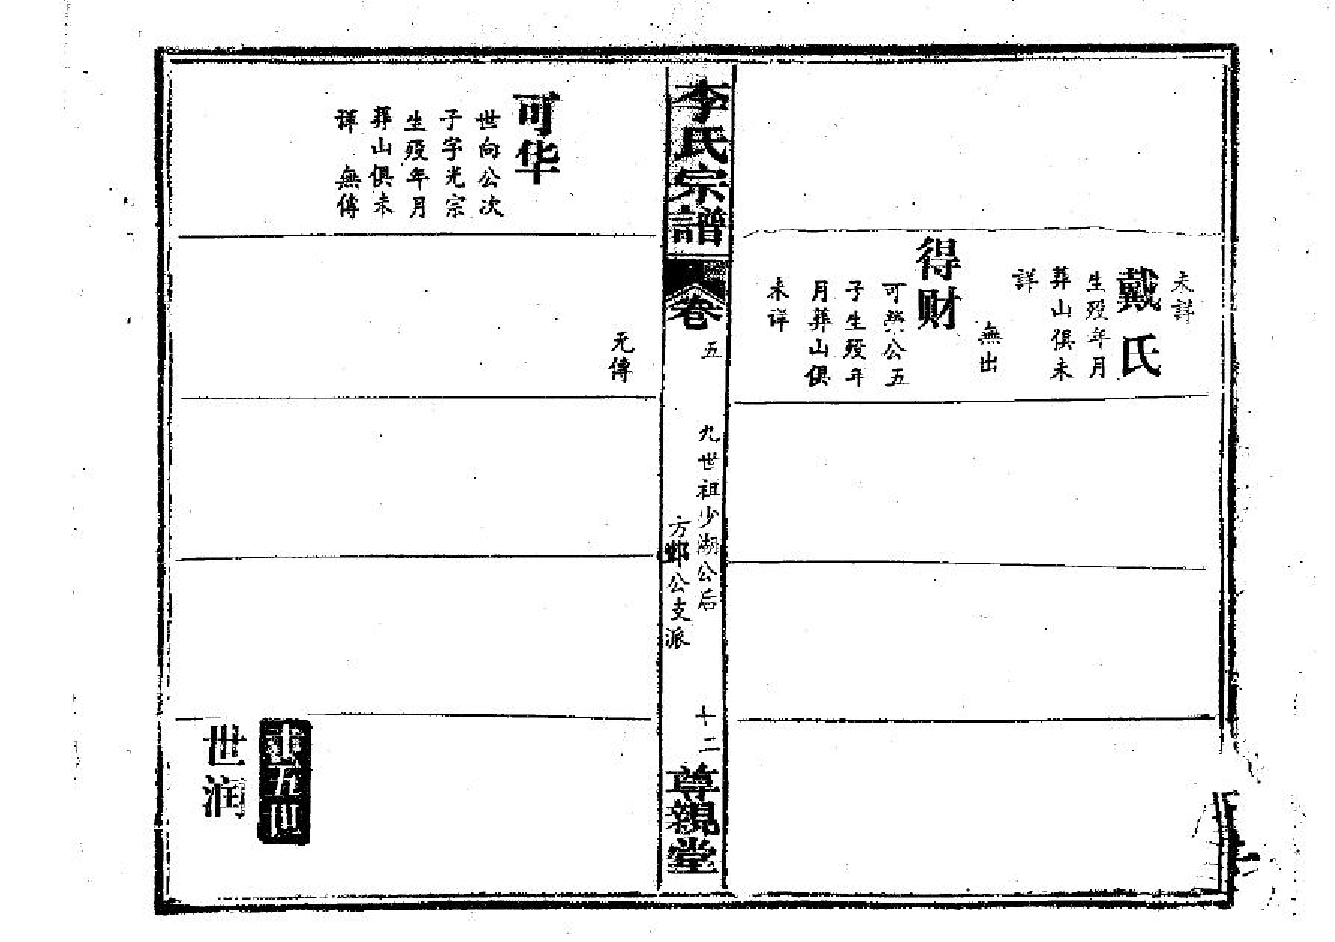 未詳
戴氏
生殁年月
葬山俱未
詳
無出
得财
可興公五
子生殁年
月葬山俱
未詳
李氏宗譜
卷
五
九世祖少湖公后
方邨公支派
十二
尊親堂
无傳
可华
世向公次
子字光宗
生殁年月
葬山俱未
詳 無傳
五世
世润